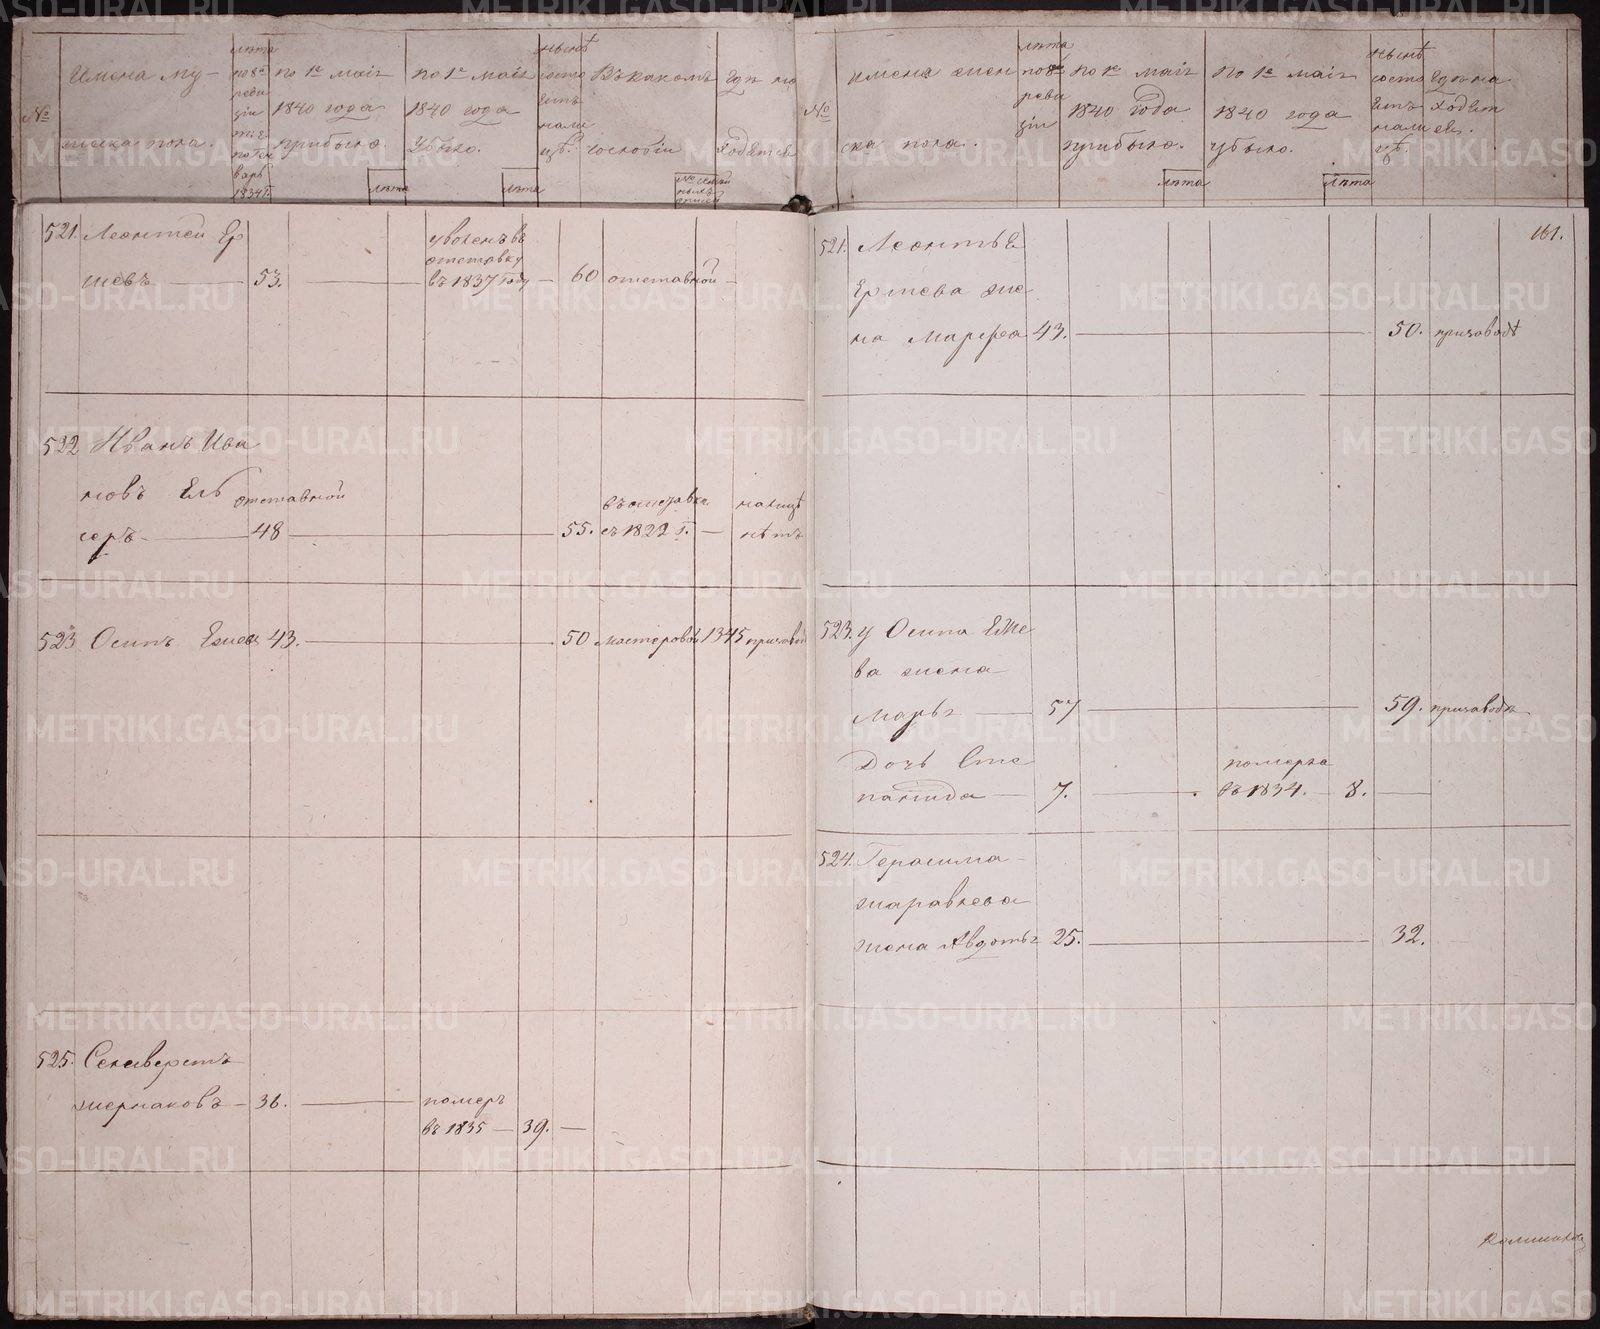 №
Имена му-
жеска пола.
лѣта
по 8й
реви
зіи
1834 г.
по 1е маія
1840 года
прибыло.
лѣта
по 1е маія
1840 года
убыло.
лѣта
нынѣ
состо
итъ
нали
цѣ.
Въ какомъ
сословіи
Гдѣ на
ходится
521. Леонтей Ер
шевъ 53.
уволенъ въ
отставку
въ 1837 году
60 отставной
522 Иванъ Ива
новъ
отставной
48
55.
въ отставке
съ 1822 г.
налицѣ
нѣтъ
523 Осипъ 43.
50 мастеровой 1345 при завод
525. Селиверстъ
36.
померъ
въ 1835 39.
№
Имена жен
ска пола.
лѣта
по 8й
реви
зіи
по 1е маія
1840 года
прибыло.
лѣта
по 1е маія
1840 года
убыло.
лѣта
нынѣ
состо
итъ
нали
цѣ
Гдѣ на
ходит
161.
521. Леонтья
Ершева же
на Марфа 43.
50. при заводѣ
523. у Осипа
ва жена
Марья 57
59. при заводѣ
Дочь Сте
панида 7.
померла
въ 1834. 8.
524. Герасима
журавлева
жена Авдотья 25.
32.
METRIKI.GASO-URAL.RU